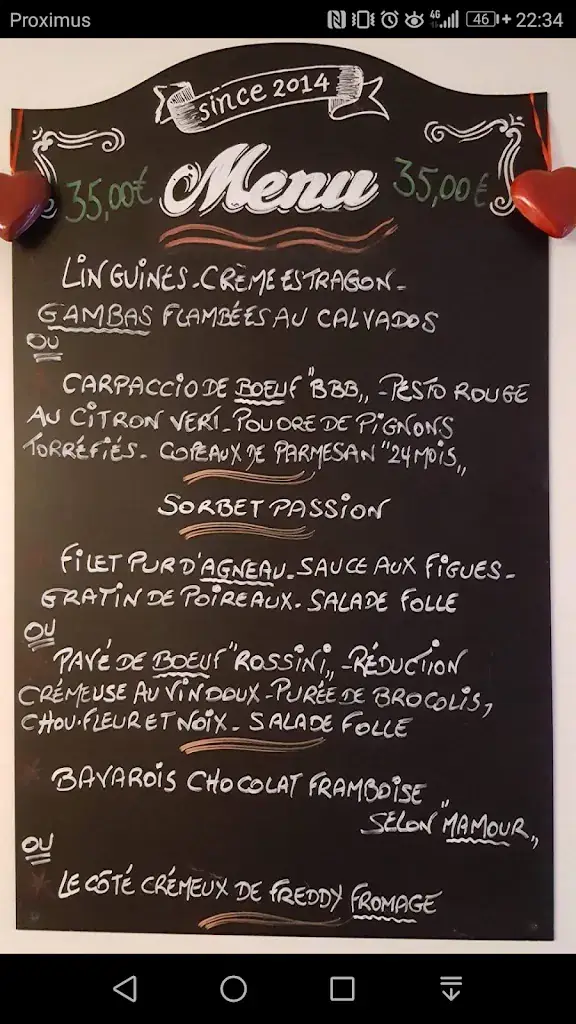 Proximus 4G 46 22:34
since 2014
35,00€ Menu 35,00€
LINGUINES-CRÈME ESTRAGON-
GAMBAS FLAMBÉES AU CALVADOS
OU
CARPACCIO DE BOEUF "BBB" -PESTO ROUGE
AU CITRON VERT-POUDRE DE PIGNONS
TORRÉFIÉS- COPEAUX DE PARMESAN "24MOIS"
SORBET PASSION
FILET PUR D'AGNEAU-SAUCE AUX FIGUES-
GRATIN DE POIREAUX-SALADE FOLLE
OU
PAVÉ DE BOEUF "ROSSINI" -RÉDUCTION
CRÉMEUSE AU VIN DOUX-PURÉE DE BROCOLIS,
CHOU-FLEUR ET NOIX- SALADE FOLLE
BAVAROIS CHOCOLAT FRAMBOISE
SELON "MAMOUR"
OU
LE CÔTÉ CRÉMEUX DE FREDDY FROMAGE